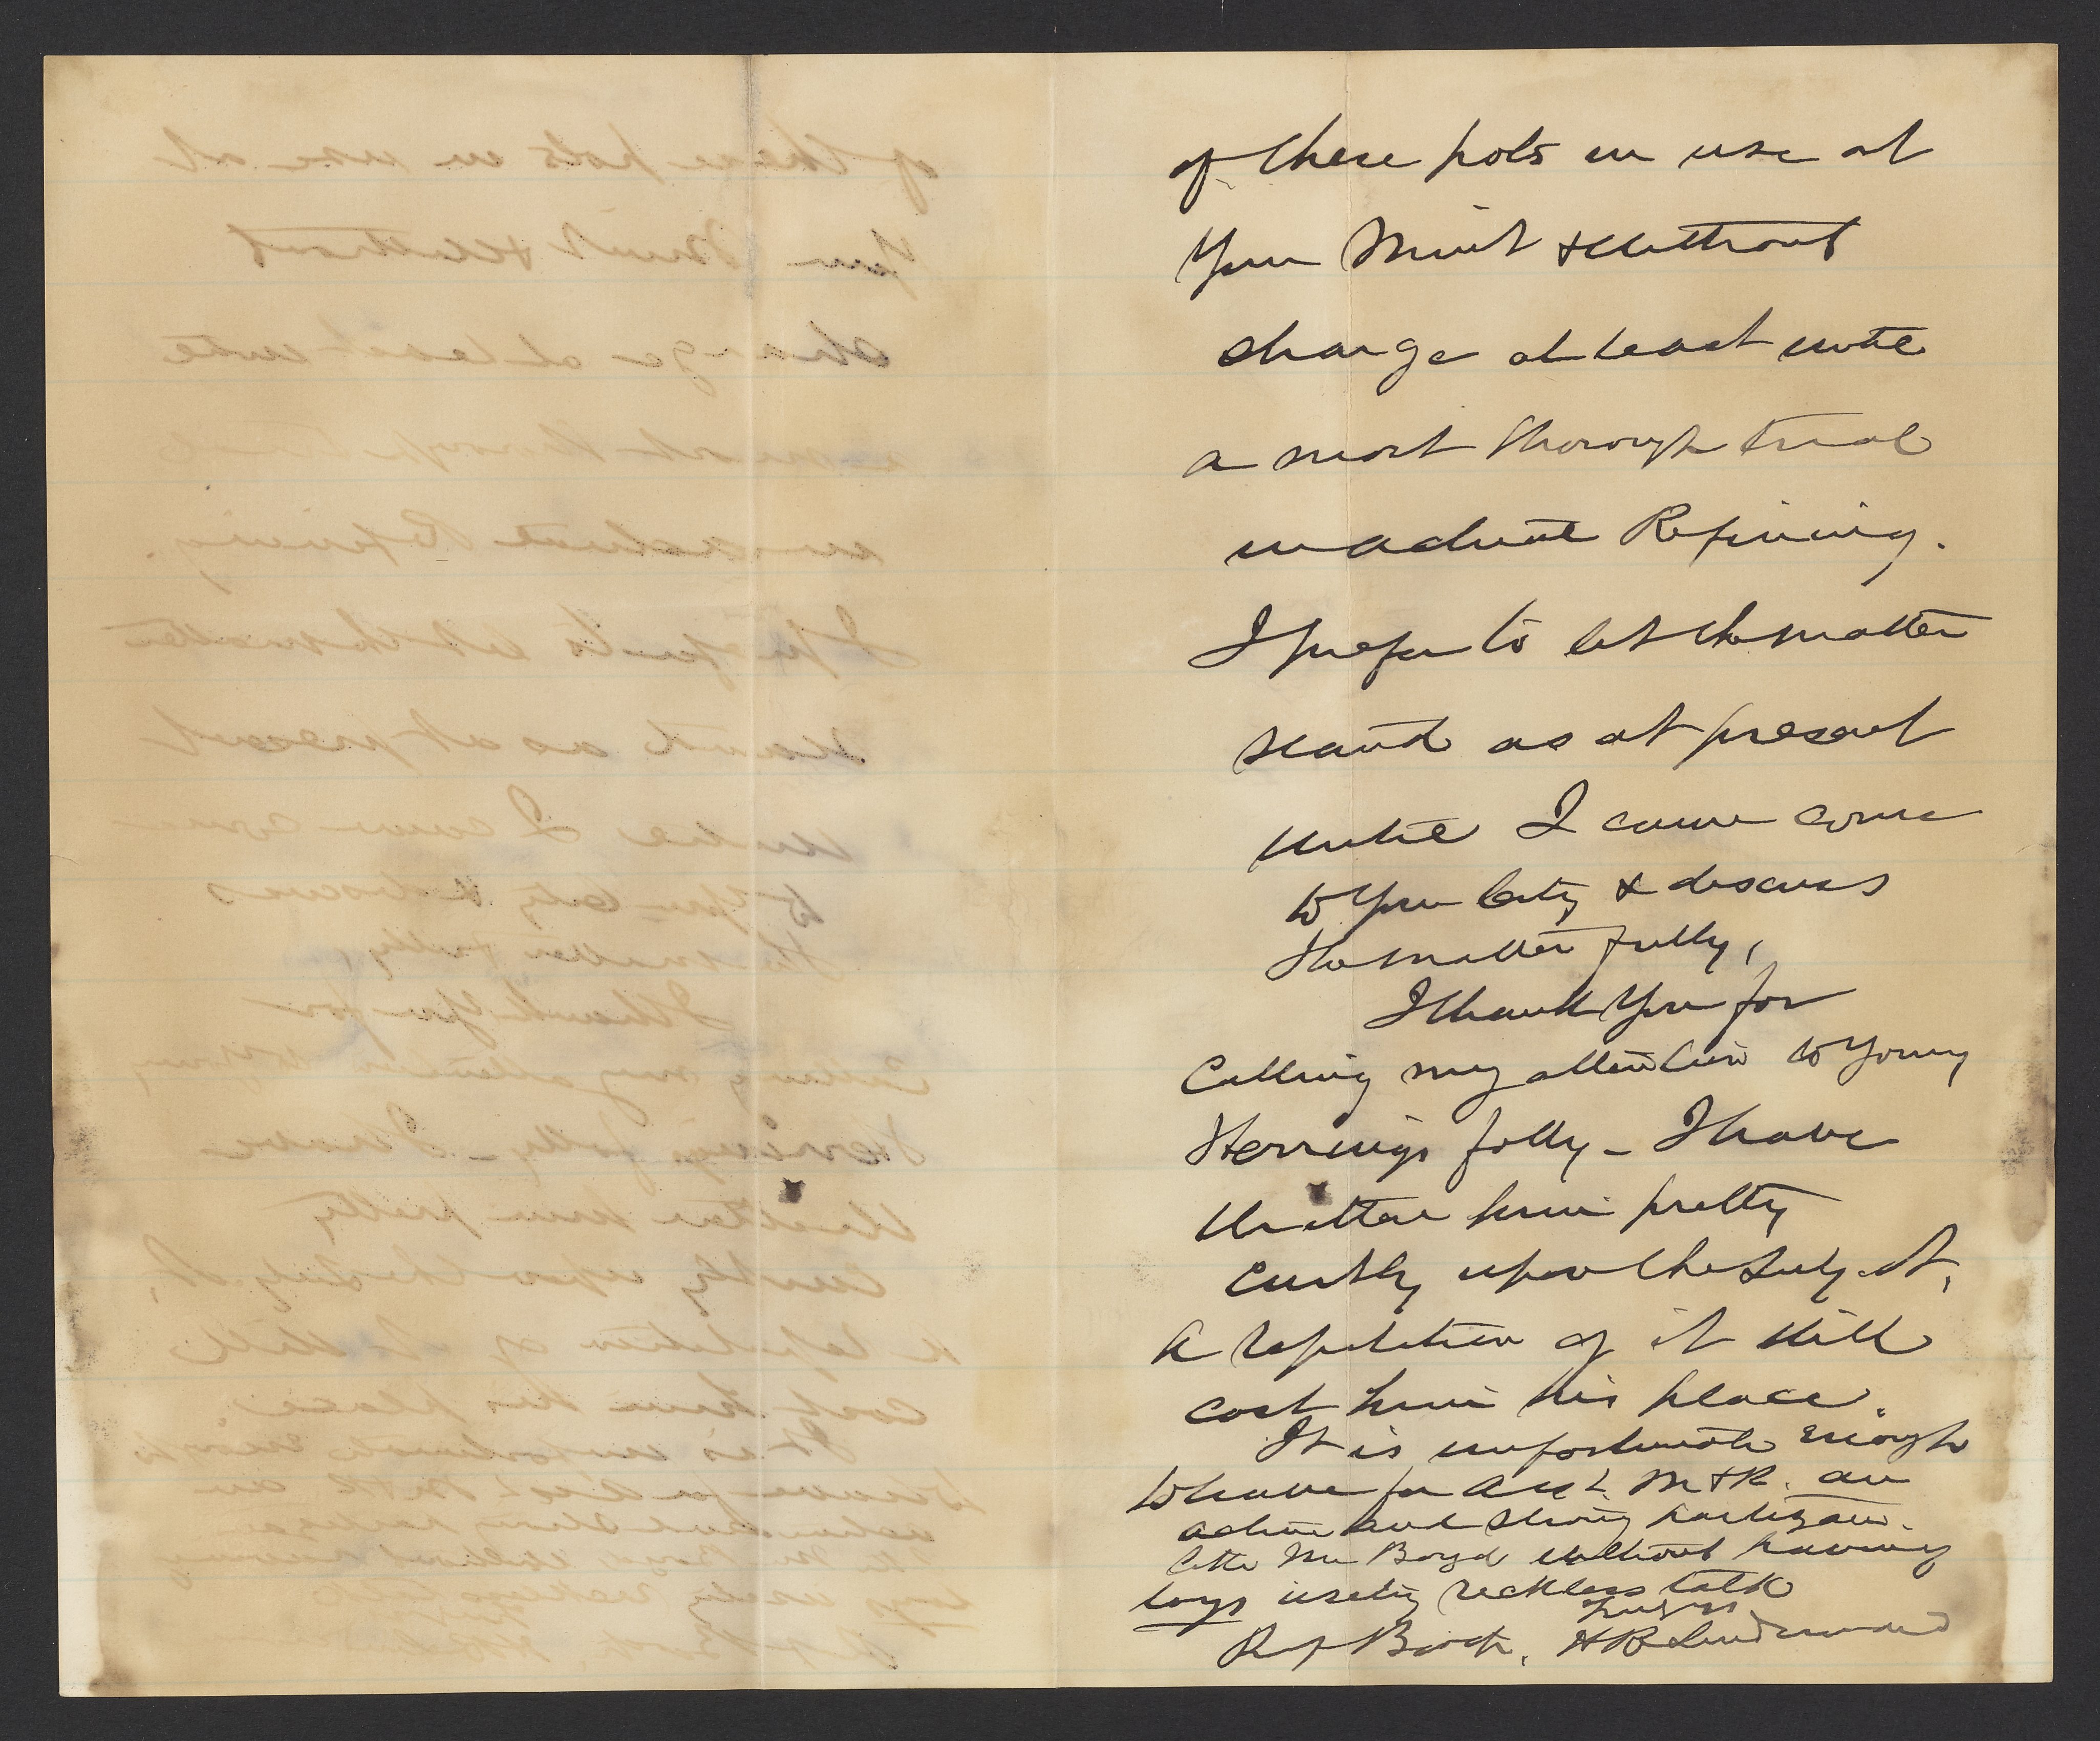 of these pots in use at
your Mint & without
charge at least until
a most thorough trial
in actual Refining.
I prefer to let the matter
stand as at present
until I can come
to your City & discuss
the matter fully,
I thank you for
Calling my attention to young
Herrings folly - I have
written him pretty
curtly upon the subject,
A repetition of it will
cost him his place.
It is unfortunate enough
to have for Asst. M & R. an
active and strong partizan
like Mr Boyd without having
boys using reckless talk
Truly yrs
Prof Booth, HR Linderman